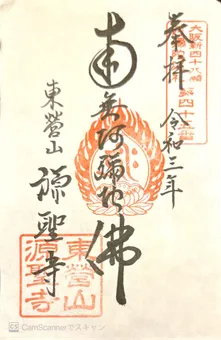 大阪新四十八願
奉拝 令和三年
南無阿彌陀佛
東營山 源聖寺
東營山
源聖寺
CamScannerでスキャン